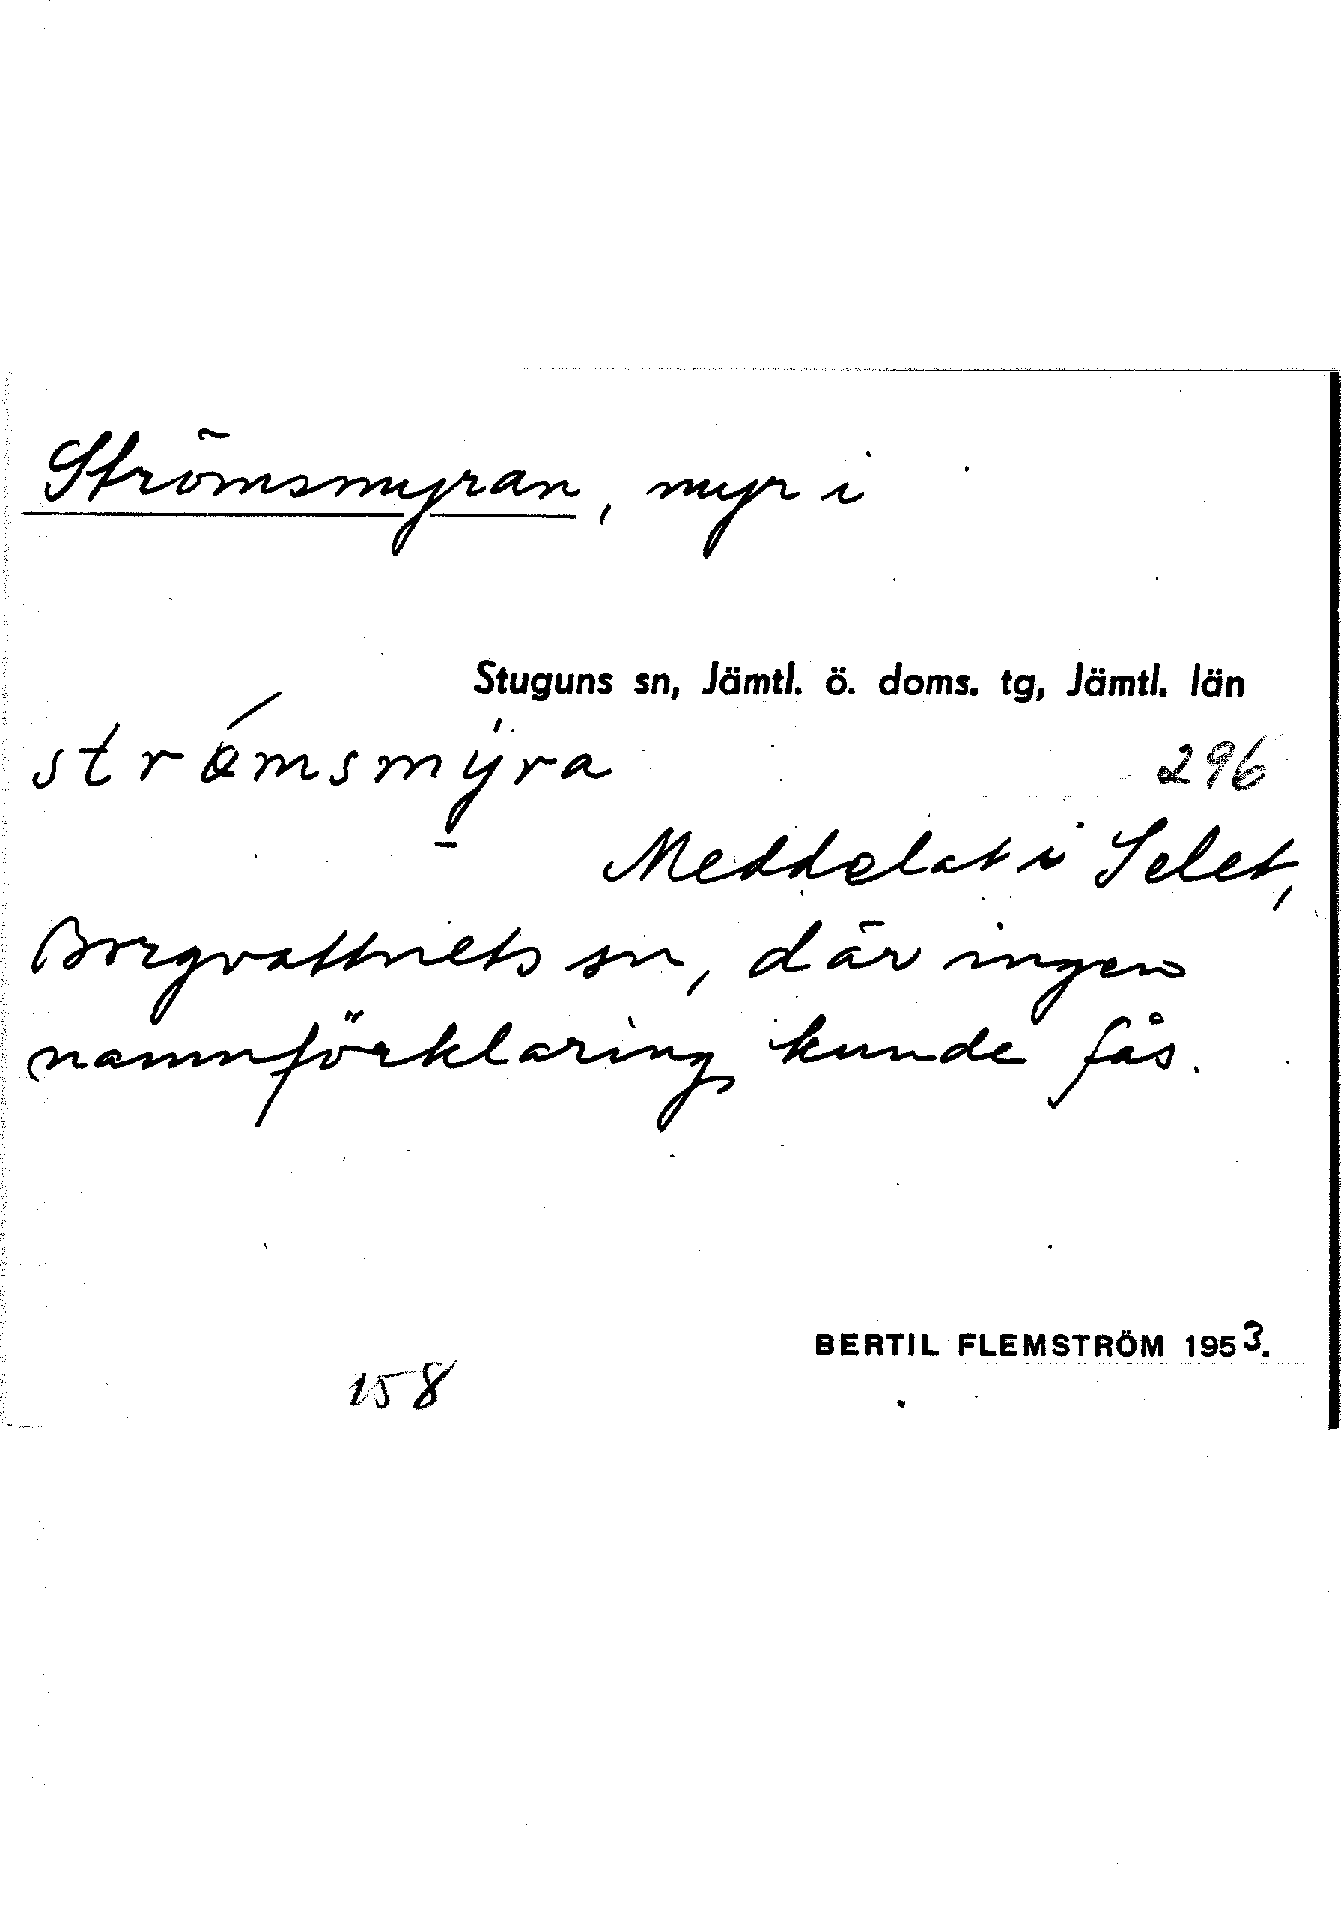 Strömsmyran, myr i
Stuguns sn, Jämtl. ö. doms. tg, Jämtl. län
strömsmyra
296
Meddelat i Selet,
Borgvattnets sn, där ingen
namnförklaring kunde fås.
BERTIL FLEMSTRÖM 1953.
158